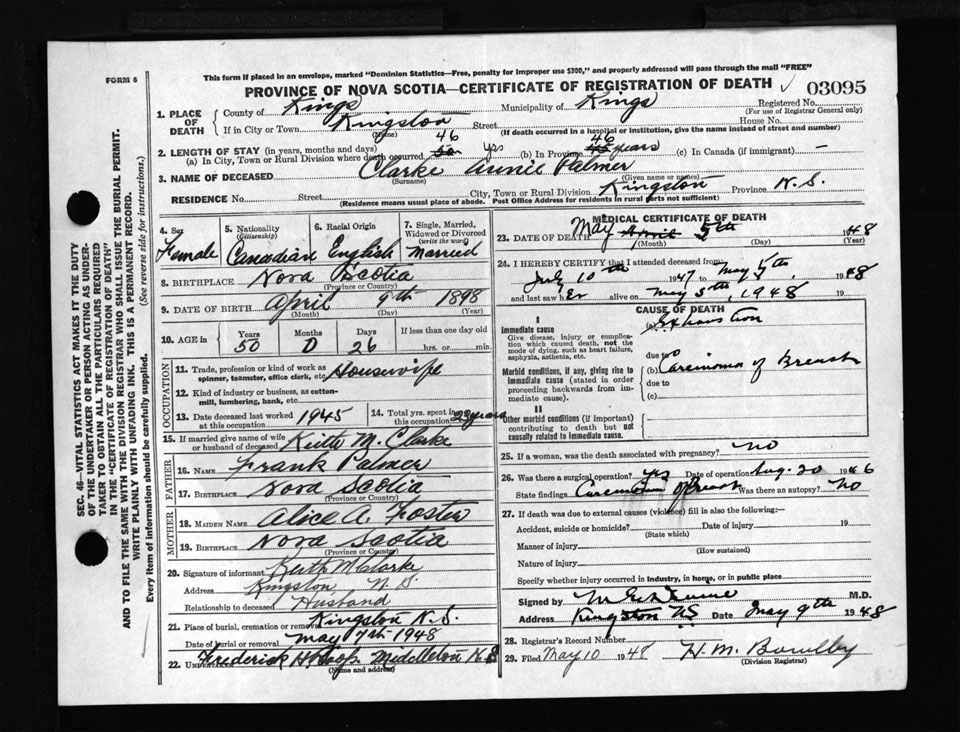 FORM 6
This form if placed in an envelope, marked "Dominion Statistics—Free, penalty for improper use $300," and properly addressed will pass through the mail "FREE"
PROVINCE OF NOVA SCOTIA—CERTIFICATE OF REGISTRATION OF DEATH ✓ 03095
SEC. 46—VITAL STATISTICS ACT MAKES IT THE DUTY
OF THE UNDERTAKER OR PERSON ACTING AS UNDER-
TAKER TO OBTAIN ALL THE PARTICULARS REQUIRED
IN THE "CERTIFICATE OF REGISTRATION OF DEATH"
AND TO FILE THE SAME WITH THE DIVISION REGISTRAR WHO SHALL ISSUE THE BURIAL PERMIT.
WRITE PLAINLY WITH UNFADING INK. THIS IS A PERMANENT RECORD.
Every item of information should be carefully supplied. (See reverse side for instructions.)
1. PLACE OF DEATH
County of Kings Municipality of Kings Registered No.
(For use of Registrar General only)
If in City or Town Kingston Street House No.
(Name) (If death occurred in a hospital or institution, give the name instead of street and number)
2. LENGTH OF STAY (in years, months and days) 46 46
(a) In City, Town or Rural Division where death occurred 50 yrs (b) In Province 45 years (c) In Canada (if immigrant) –
3. NAME OF DECEASED Clarke Annie Palmer
(Surname) (Given name or names)
RESIDENCE No. Street City, Town or Rural Division Kingston Province N.S.
(Residence means usual place of abode. Post Office Address for residents in rural parts not sufficient)
4. Sex Female
5. Nationality (Citizenship) Canadian
6. Racial Origin English
7. Single, Married, Widowed or Divorced (write the word) Married
8. BIRTHPLACE Nova Scotia
(Province or Country)
9. DATE OF BIRTH April 9th 1898
(Month) (Day) (Year)
10. AGE in Years 50 Months 0 Days 26 If less than one day old hrs. or min.
OCCUPATION
11. Trade, profession or kind of work as spinner, teamster, office clerk, etc. Housewife
12. Kind of industry or business, as cotton-mill, lumbering, bank, etc.
13. Date deceased last worked at this occupation 1945
14. Total yrs. spent in this occupation years
15. If married give name of wife or husband of deceased Keith M. Clarke
FATHER
16. NAME Frank Palmer
17. BIRTHPLACE Nova Scotia
(Province or Country)
MOTHER
18. MAIDEN NAME Alice A. Foster
19. BIRTHPLACE Nova Scotia
(Province or Country)
20. Signature of informant Keith M Clarke
Address Kingston N.S.
Relationship to deceased Husband
21. Place of burial, cremation or removal Kingston N.S.
Date of burial or removal May 7th 1948
22. Undertaker Frederick H Middleton N.S
(Name and address)
MEDICAL CERTIFICATE OF DEATH
23. DATE OF DEATH May April 5th 1948
(Month) (Day) (Year)
24. I HEREBY CERTIFY that I attended deceased from
July 10th 1947 to May 5th, 1948
and last saw her alive on May 5th, 1948 19
CAUSE OF DEATH
I
Immediate cause (a) Exhaustion
Give disease, injury or complication which caused death, not the mode of dying, such as heart failure, asphyxia, asthenia, etc.
due to
Morbid conditions, if any, giving rise to immediate cause (stated in order proceeding backwards from immediate cause).
(b) Carcinoma of Breast
due to
(c)
II
Other morbid conditions (if important) contributing to death but not causally related to immediate cause.
25. If a woman, was the death associated with pregnancy? no
26. Was there a surgical operation? yes Date of operation Aug. 20 1946
State findings Carcinoma of Breast Was there an autopsy? No
27. If death was due to external causes (violence) fill in also the following:—
Accident, suicide or homicide? Date of injury 19
(State which)
Manner of injury
(How sustained)
Nature of injury
Specify whether injury occurred in industry, in home, or in public place
Signed by M.D.
Address Kingston NS Date May 9th 1948
28. Registrar's Record Number
29. Filed May 10 1948 H. M. Bowlby
(Division Registrar)